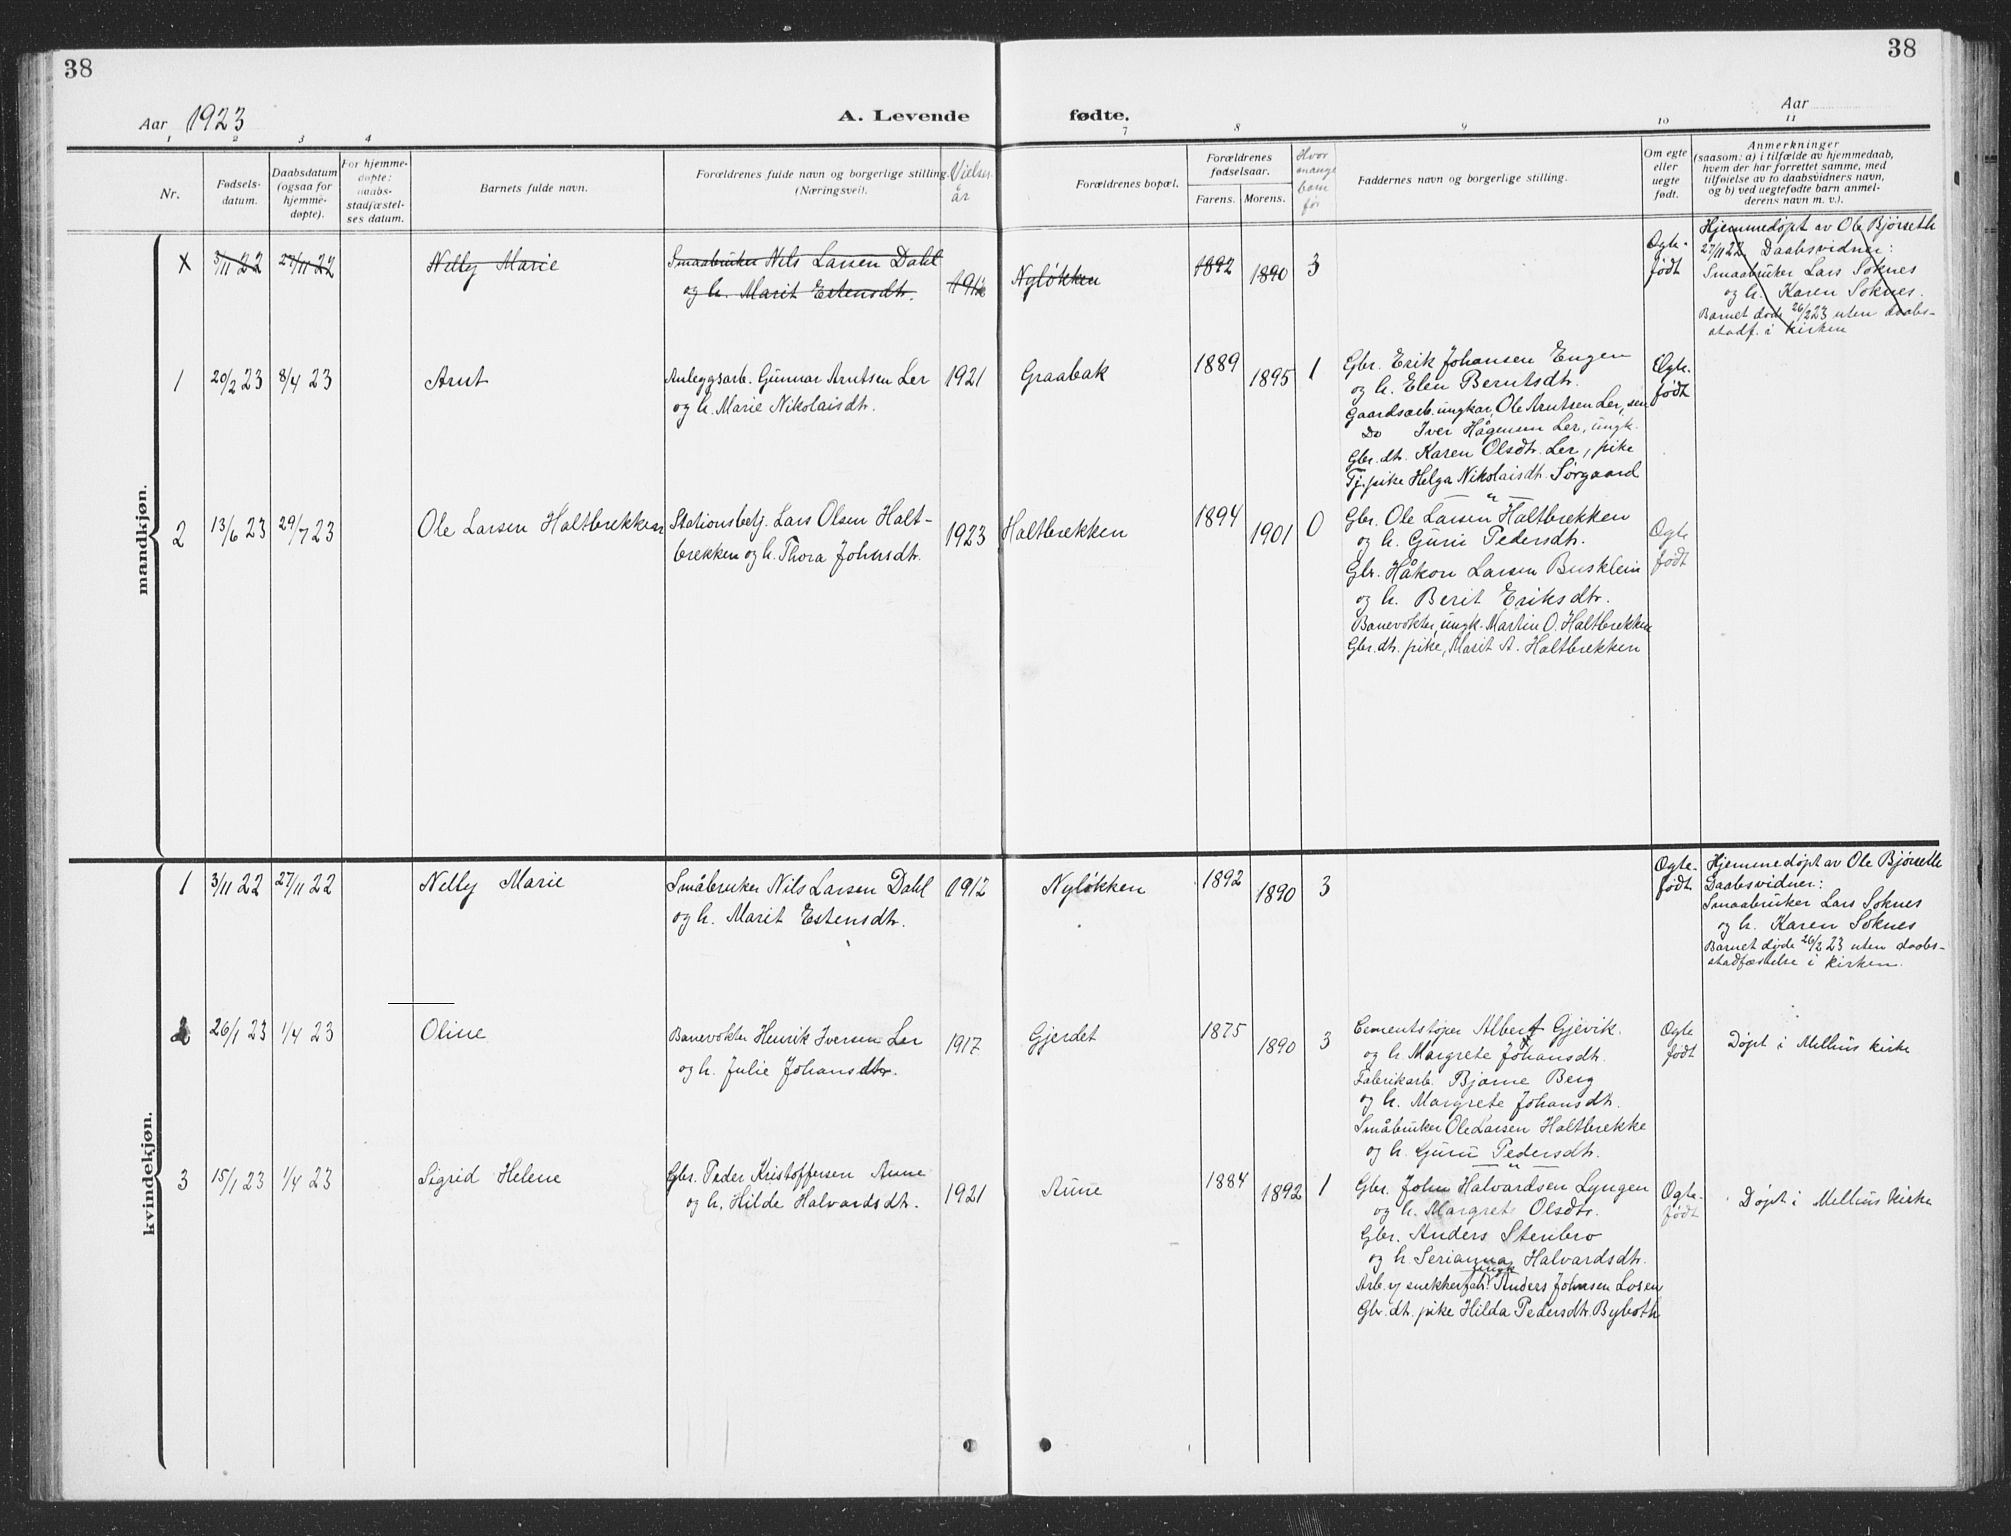 38
38
Aar 1923
A. Levende
fødte.
Aar
1
2
3
4
7
8
9
10
11
Nr.
Fødsels-
datum.
Daabsdatum
(ogsaa for
hjemme-
døpte).
For hjemme-
døpte:
daabs-
stadfæstel-
ses datum.
Barnets fulde navn.
Forældrenes fulde navn og borgerlige stilling.
(Næringsvei).
Vielses
år
Forældrenes bopæl.
Forældrenes
fødselsaar.
Farens.
Morens.
Hvor
mange
barn
før
Faddernes navn og borgerlige stilling.
Om egte
eller
uegte
født.
Anmerkninger
(saasom: a) i tilfælde av hjemmedaab,
hvem der har forrettet samme, med
tilføielse av to daabsvidners navn,
og b) ved uegtefødte barn anmel-
derens navn m. v.).
mandkjøn.
3/11 22
27/11 22
Nelly Marie
Smaabruker Nils Larsen Dahl
og h. Marit Estensdtr.
1912
Nyløkken
1892
1890
3
Egte-
født
Hjemmedøpt av Ole Bjørseth
27/11 22. Daabsvidner:
Smaabruker Lars Soknes
og h. Karen Soknes.
Barnet døde 26/2 23 uten daabs-
stadf. i kirken
1
20/2 23
8/4 23
Arnt
Anleggsarb. Gunnar Arntsen Ler
og h. Marie Nikolaisdtr.
1921
Graabak
1889
1895
1
Gbr. Erik Johansen Engen
og h. Elen Berntsdtr.
Gaardsarb. ungkar, Ole Arntsen Ler, sen
Do Iver Hågensen Ler, ungk.
Gbr. dtr. Karen Olsdtr. Ler, pike
Tj. pike Helga Nikolaisdtr. Sørgaard
Egte-
født
2
13/6 23
29/7 23
Ole Larsen Haltbrekken
Stationsbetj. Lars Olsen Halt-
brekken og h. Thora Johnsdtr.
1923
Haltbrekken
1894
1901
0
Gbr. Ole Larsen Haltbrekken
og h. Guru Pedersdtr.
Gbr. Håkon Larsen Busklein
og h. Berit Eriksdtr.
Banevokter, ungk. Martin O. Haltbrekken
Gbr. dtr. pike, Marit A. Haltbrekken
Egte
født
kvindekjøn.
1
3/11 22
27/11 22
Nelly Marie
Småbruker Nils Larsen Dahl
og h. Marit Estensdtr.
1912
Nyløkken
1892
1890
3
Egte-
født
Hjemmedøpt av Ole Bjørseth
Daabsvidner:
Smaabruker Lars Soknes
og h. Karen Soknes
Barnet døde 26/2 23 uten daabs-
stadfæstelse i kirken.
2
26/1 23
1/4 23
Oline
Banevokter Henrik Iversen Ler
og h. Julie Johansdtr.
1917
Gjerdet
1875
1890
3
Cementstøper Albert Gjevik.
og h. Margrete Johansdtr.
Fabrikarb. Bjarne Berg
og h. Margrete Johansdtr.
Småbruker Ole Larsen Haltbrekke
og h. Guru Pedersdtr.
Egte
født
Døpt i Melhus kirke
3
15/1 23
1/4 23
Sigrid Helene
Gbr. Peder Kristoffersen Aune
og h. Hilde Halvardsdtr.
1921
Aune
1884
1892
1
Gbr. John Halvardsen Lyngen
og h. Margrete Olsdtr.
Gbr. Anders Stenbro
og h. Serianna Halvardsdtr.
ungk
Arb. v/ snekkerfab. Anders Johnsen Losen
Gbr. dtr. pike Hilda Pedersdtr. Byboth
Egte-
født
Døpt i Melhus kirke